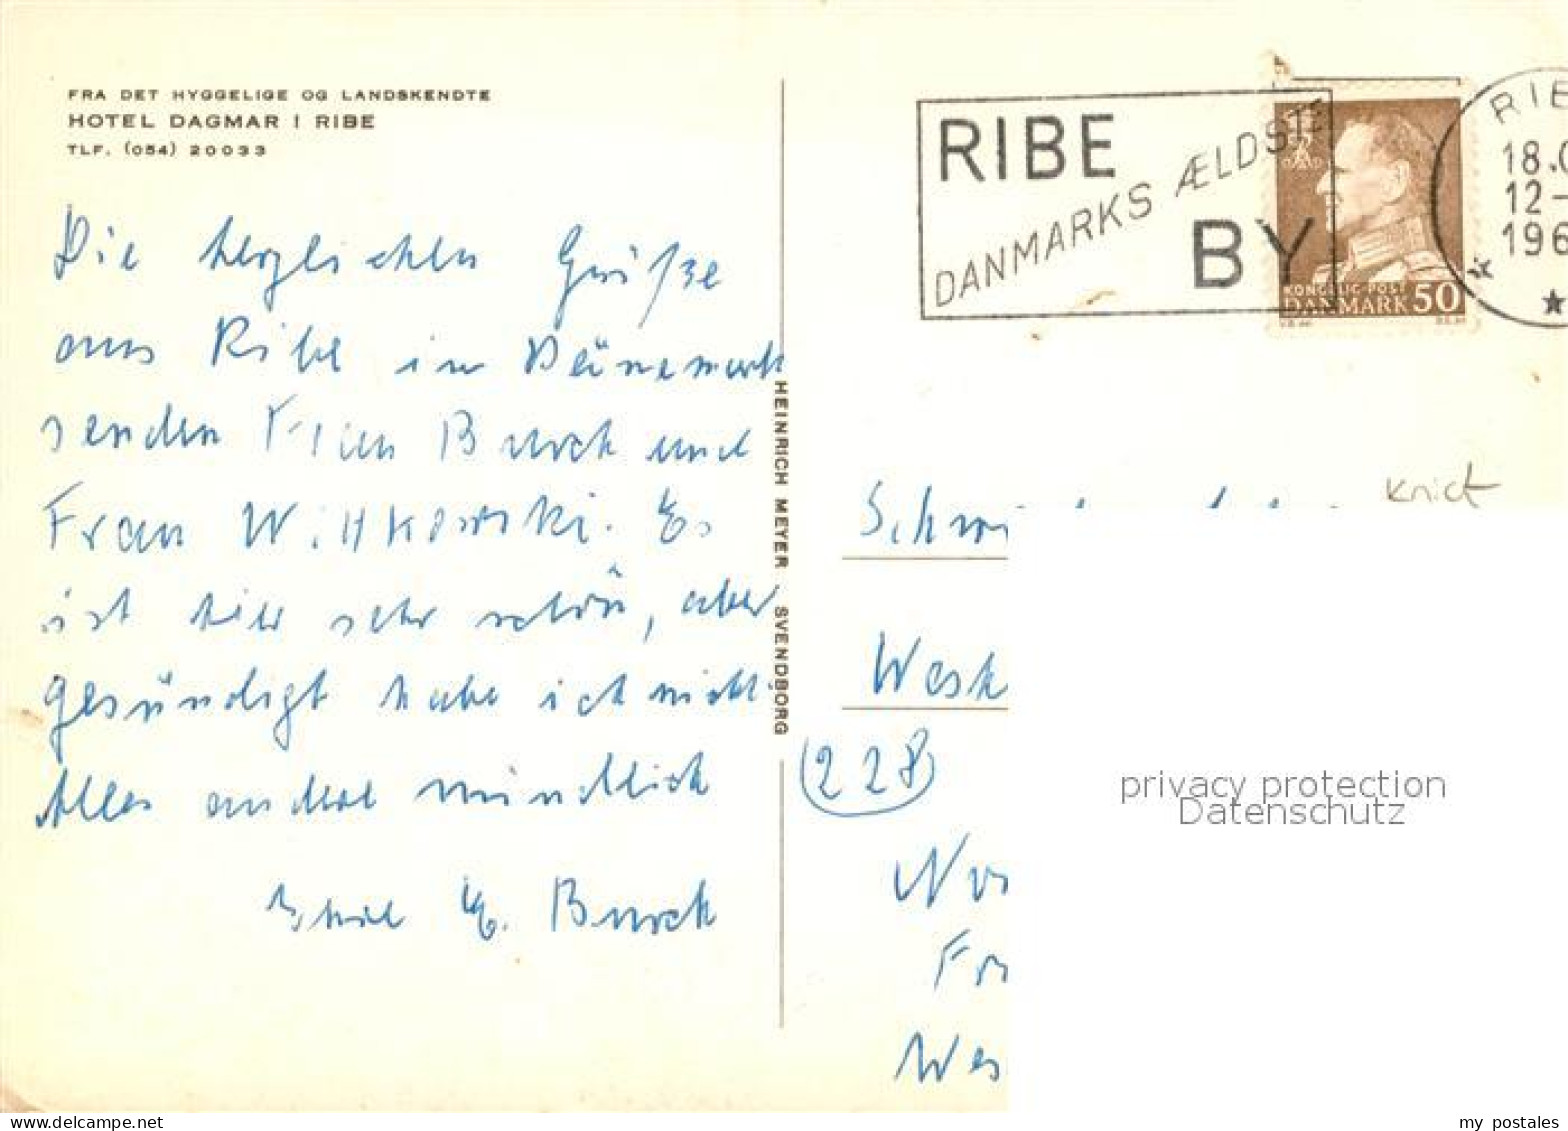 FRA DET HYGGELIGE OG LANDSKENDTE
HOTEL DAGMAR I RIBE
TLF. (054) 20033
Die herzlichsten Grüße
aus Ribe in Dänemark
senden Frau Burck und
Frau Wittkowski. Es
ist hier sehr schön, aber
gesündigt habe ich nicht.
Alles andere mündlich
Ihre E. Burck
HEINRICH MEYER SVENDBORG
RIBE
DANMARKS ÆLDSTE
BY
KONGELIG POST
DANMARK 50
RIB
18.
12-
196
Knick
Schw
West
228
No
Fr
Wes
privacy protection
Datenschutz
my postales